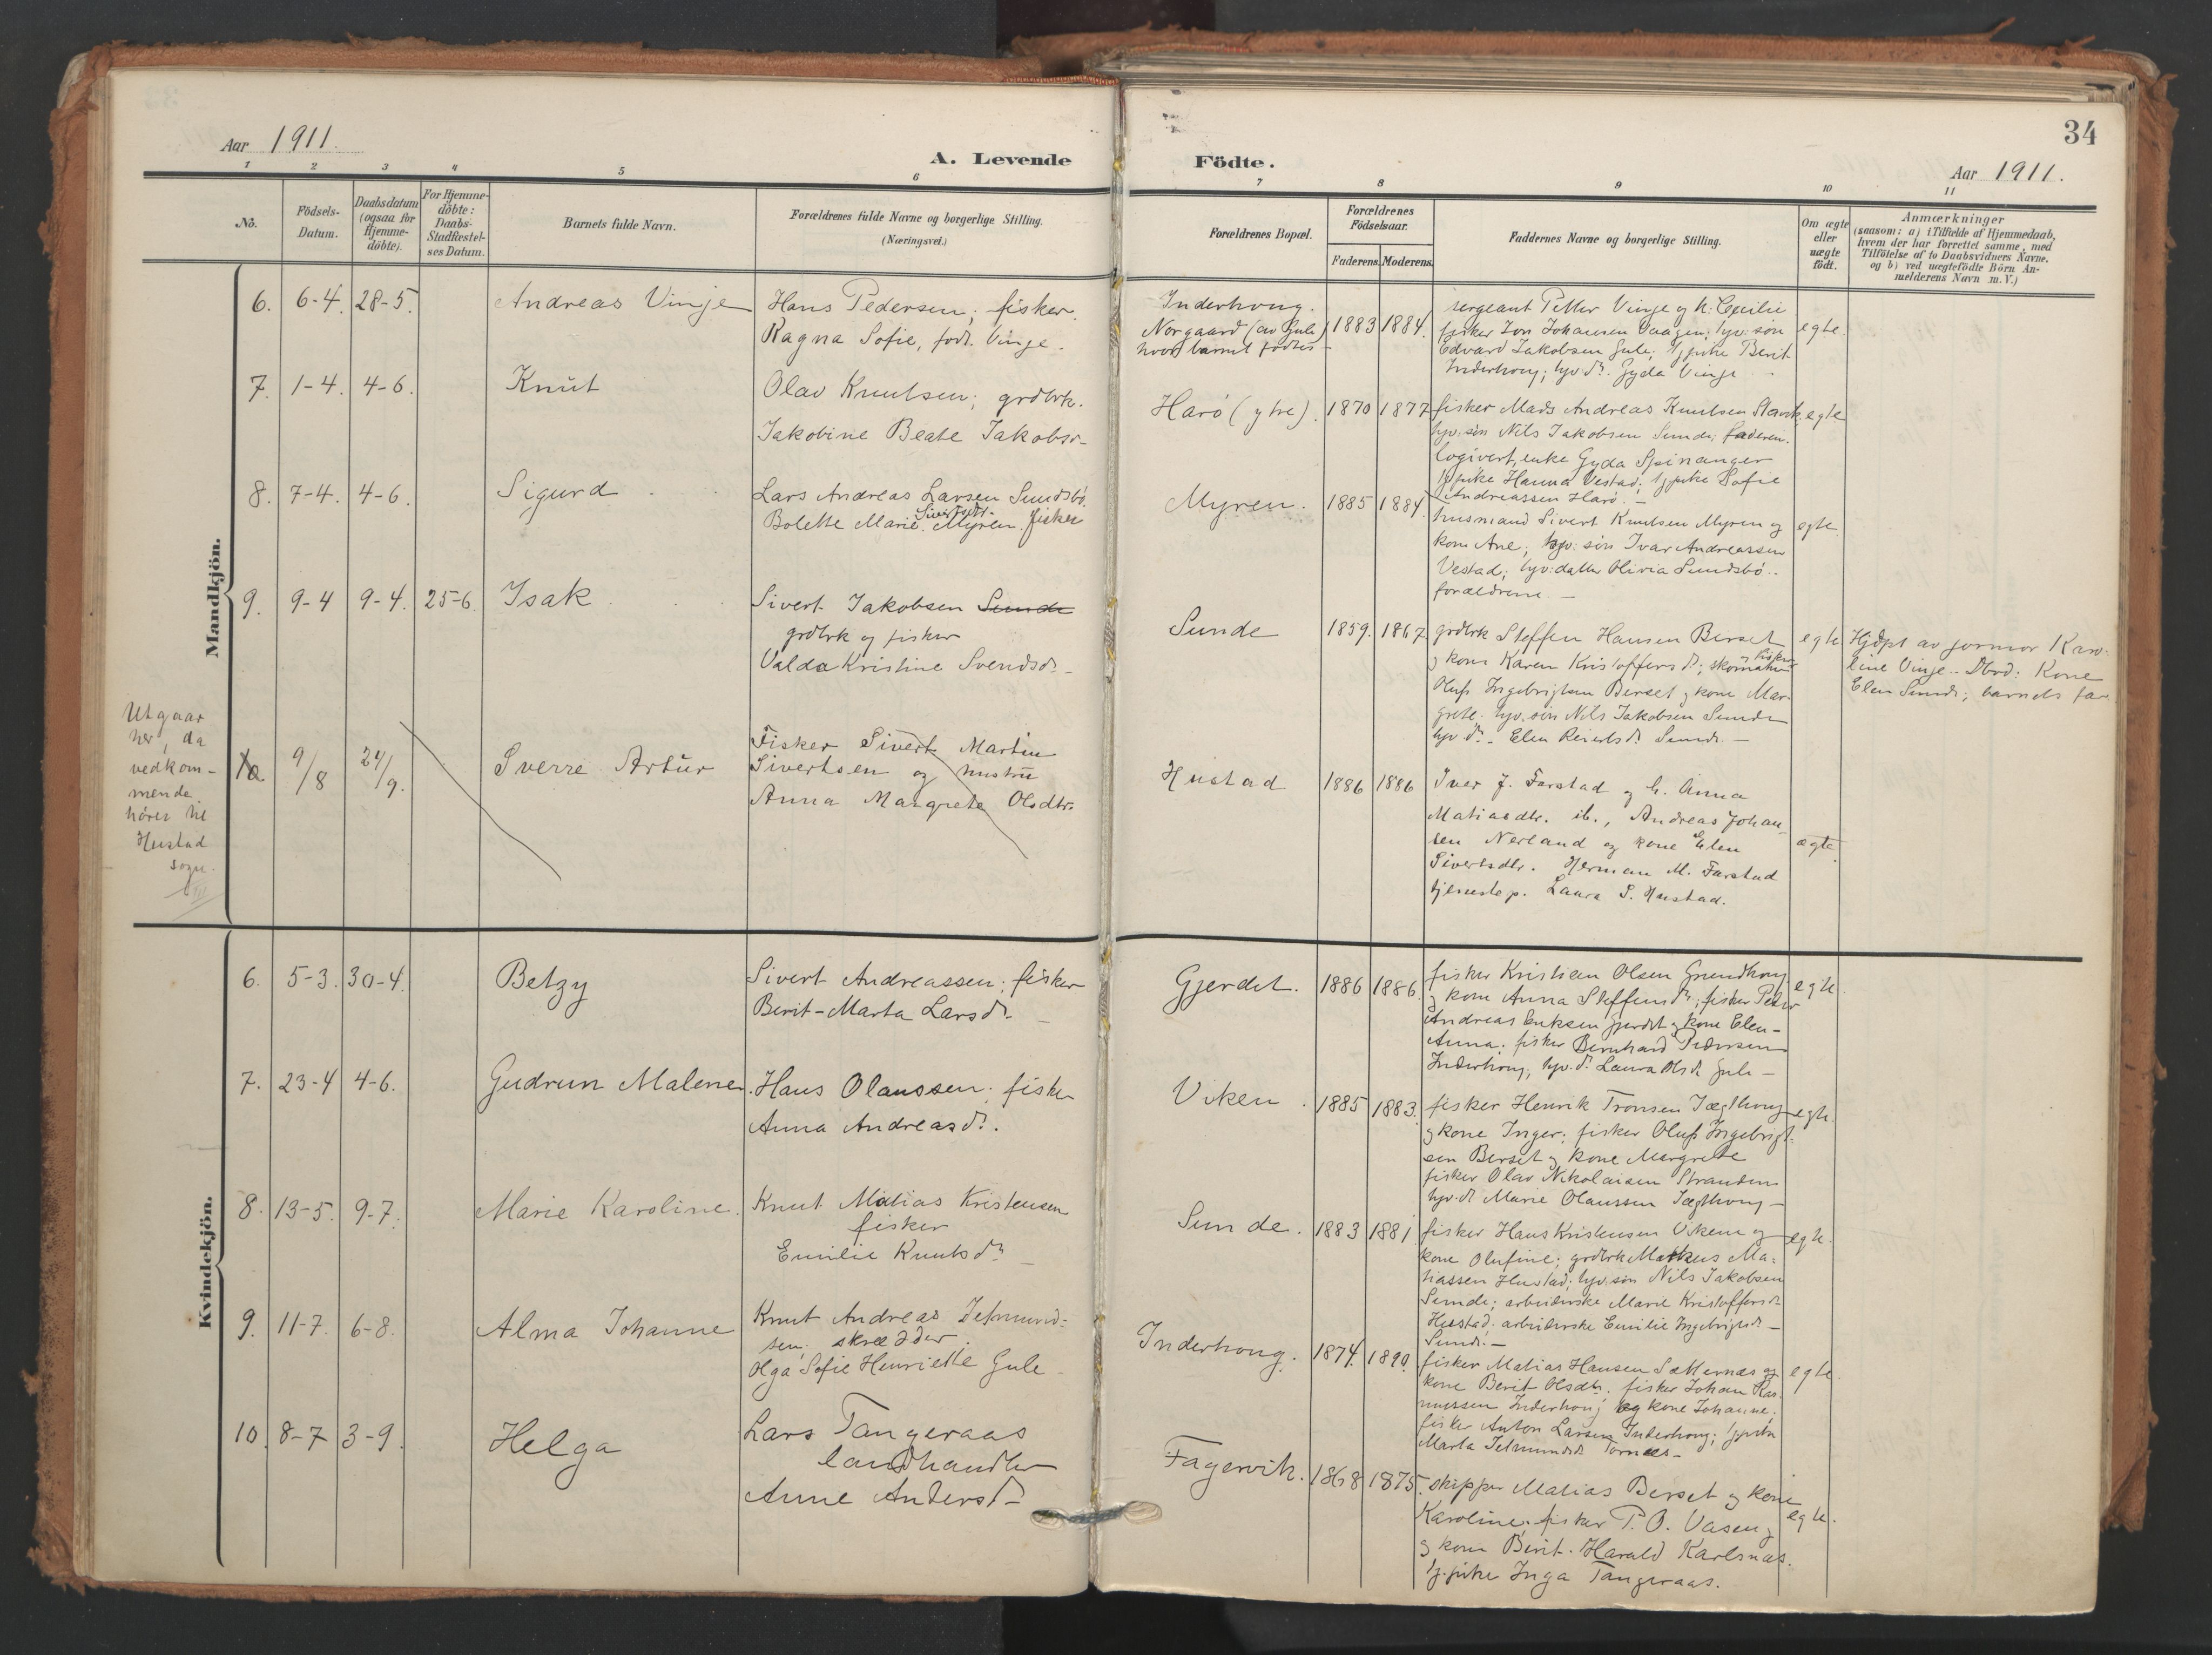 Aar 1911.
A. Levende
1 2 3 4 5 6
No.
Födsels-
Datum.
Daabsdatum
(ogsaa for
Hjemme-
döbte).
For Hjemme-
döbte:
Daabs-
Stadfestel-
ses Datum.
Barnets fulde Navn.
Forældrenes fulde Navne og borgerlige Stilling.
(Næringsvei.)
Mandkjön.
6. 6-4. 28-5. Andreas Vinje Hans Pedersen; fisker.
Ragna Sofie, födt Vinje.
7. 1-4. 4-6. Knut Olav Knutsen; grdbrk.
Jakobine Beate Jakobsd.
8. 7-4. 4-6. Sigurd Lars Andreas Larsen Sundsbö
Sivertsdt.
Bolette Marie Myren. fisker
9. 9-4 9-4. 25-6. Isak Sivert Jakobsen Sunde
grdbrk og fisker
Valda Kristine Svendsd.
Utgaar
her, da
vedkom-
mende
hörer til
Hustad
sogn.
10 9/8 24/9. Sverre Artur Fisker Sivert Martin
Sivertsen og hustru
Anna Margrete Olsdtr.
Kvindekjön.
6. 5-3. 30-4. Betzy Sivert Andreassen; fisker
Berit-Marta Larsd.
7. 23-4 4-6. Gudrun Malene. Hans Olaussen; fisker
Anna Andreasd.
8. 13-5. 9-7. Marie Karoline. Knut Matias Kristensen
fisker
Emilie Knutsd.
9. 11-7. 6-8. Alma Johanne Knut Andreas Jetmund-
sen; skrædder.
Olga Sofie Henriette Gule
10. 8-7 3-9. Helga Lars Tangeraas
landhandler
Anne Andersd.
34
Födte.
Aar 1911.
7 8 9 10 11
Forældrenes Bopæl.
Forældrenes
Födselsaar.
Faderens. Moderens.
Faddernes Navne og borgerlige Stilling.
Om ægte
eller
uægte
födt.
Anmærkninger
(saasom: a) i Tilfælde af Hjemmedaab,
hvem der har forrettet samme, med
Tilföielse af to Daabsvidners Navne.
og b) ved uægtefödte Börn An-
melderens Navn m.V.)
Inderhoug.
Norgaard (av Gule)
hvor barnet födtes
1883 1884. egte.
sergeant Petter Vinje og h. Cecilie
fisker Jon Johansen Vaagen; hjv: sön
Edvard Jakobsen Gule; tj pike Berit
Inderhoug; hjv. d. Gyda Vinje
Harö (ytre). 1870 1877 egte
fisker Mads Andreas Knutsen Stavik;
hjv. sön Nils Jakobsen Sunde; faderen.
logivert, enke Gyda Spinanger
tj pike Hanna Vestad; tj pike Sofie
Andreassen Harö. -
Myren. 1885 1884. egte
husmand Sivert Knutsen Myren og
kone Ane; hjv: sön Ivar Andreassen
Vestad; hjv: datter Olivia Sundsbö.
forældrene. -
Sunde 1859. 1867 egte
grdbrk Steffen Hansen Berset
og kone Karen Kristoffersd.; skomaker
og fisker
Oluf Ingebrigtsen Berset og kone Mar-
grete; hjv. sön Nils Jakobsen Sunde
hjv d. Elen Reiertsd. Sunde. -
Hjdpt av jormor Karo-
line Vinje. Dbvd: Kone
Elen Sunde; barnets far.
Hustad 1886 1886 ægte
Iver J. Farstad og h. Anna
Matiasdtr. ib., Andreas Johan-
sen Nerland og kone Elen
Sivertsdtr. Herman M. Farstad
tjenestep. Laura S. Hustad.
Gjerdet. 1886 1886. egte
fisker Kristian Olsen Grundhoug
og kone Anna Steffensd.; fisker Peder
Andreas Eriksen Gjerdet og kone Elen-
Anna; fisker Bernhard Pedersen
Inderhoug; hjv. d. Laura Olsd. Gule -
Viken. 1885 1883. egte.
fisker Henrik Tronsen Jægthoug
og kone Inger; fisker Oluf Ingebrigt-
sen Berset og kone Margrete
fisker Olav Nikolaisen Stranden
hjv. d. Marie Olaussen Jægthoug -
Sunde. 1883 1881 egte.
fisker Hans Kristensen Viken og
kone Olufine; grdbrk Markus Ma-
tiassen Hustad; hjv. sön Nils Jakobsen
Sunde; arbeiderske Marie Kristoffersd.
Hustad; arbeiderske Emilie Ingebrigtsd. -
Sunde. -
Inderhoug. 1874. 1890. egte
fisker Matias Hansen Sætternæs og
kone Berit Olsdtr. fisker Johan Ras-
mussen Inderhoug og kone Johanne;
fisker Anton Larsen Inderhoug; tj pike
Marta Jetmundsd. Tornæs. -
Fagervik. 1868 1875. egte.
skipper Matias Berset og kone
Karoline; fisker P. O. Vasen
og kone Berit. Harald Karlsnæs.
tj. pike Inga Tangeraas.